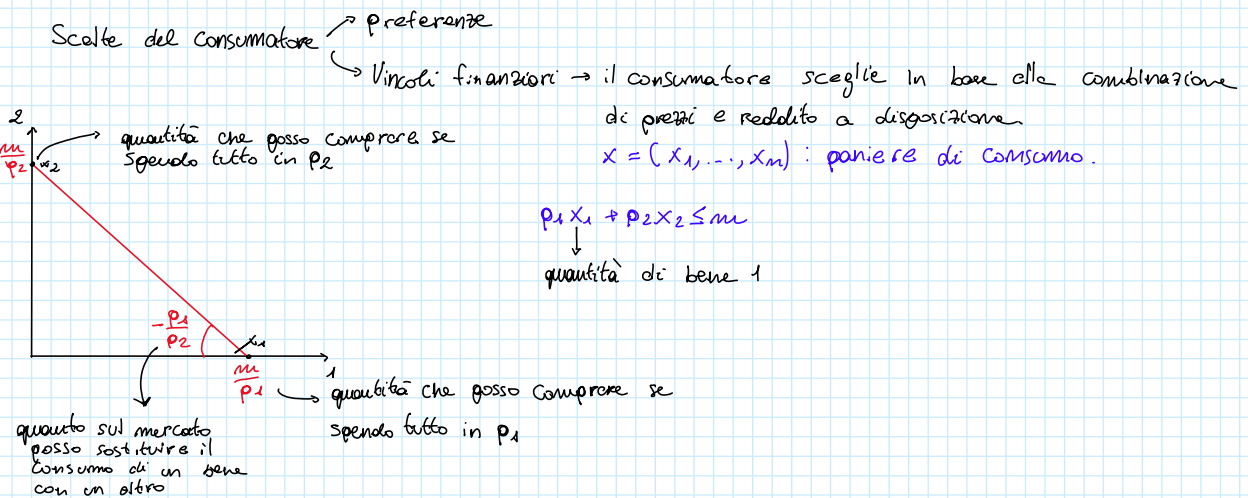 Scelte del consumatore
→ preferenze
→ Vincoli finanziari → il consumatore sceglie in base alla combinazione
di prezzi e reddito a disposizione
x = (x1, ..., xn) : paniere di consumo.
2
quantità che posso comprare se
spendo tutto in p2
m/p2
x2
p1x1 + p2x2 ≤ m
quantità di bene 1
-p1/p2
x1
1
m/p1
quantità che posso comprare se
spendo tutto in p1
quanto sul mercato
posso sostituire il
consumo di un bene
con un altro